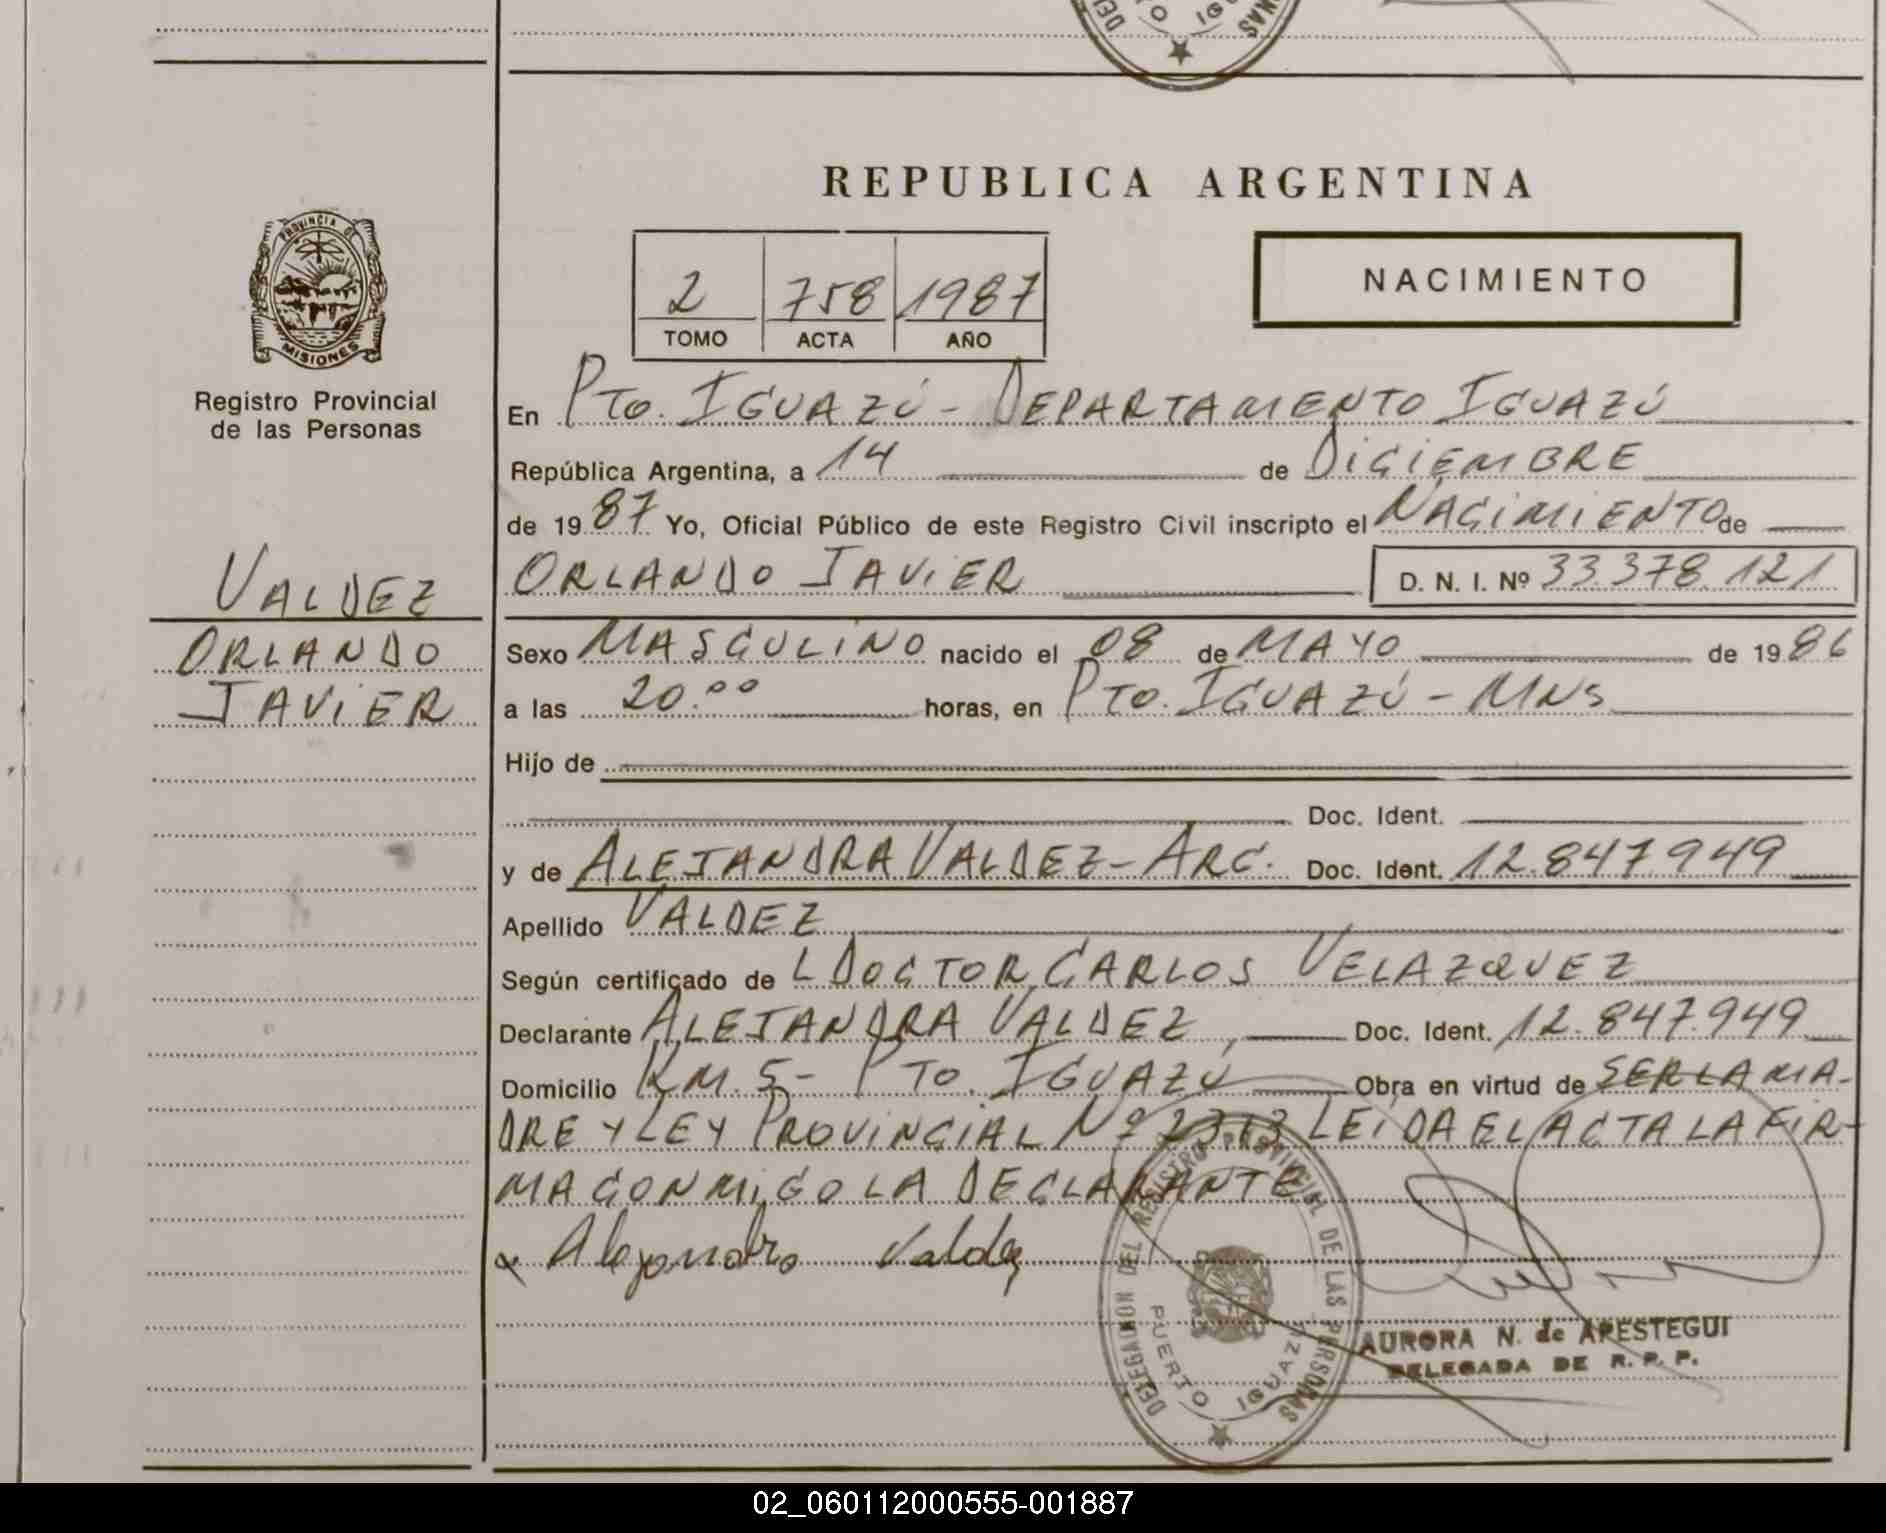 REPUBLICA ARGENTINA
PROVINCIA DE
MISIONES
Registro Provincial
de las Personas
VALDEZ
ORLANDO
JAVIER
2 758 1987
TOMO ACTA AÑO
NACIMIENTO
En PTO. IGUAZÚ - DEPARTAMENTO IGUAZÚ
República Argentina, a 14 de DICIEMBRE
de 1987 Yo, Oficial Público de este Registro Civil inscripto el NACIMIENTO de
ORLANDO JAVIER D. N. I. Nº 33.378.121
Sexo MASCULINO nacido el 08 de MAYO de 1986
a las 20.00 horas, en PTO. IGUAZÚ - MNS
Hijo de
Doc. Ident.
y de ALEJANDRA VALDEZ - ARG. Doc. Ident. 12.847949
Apellido VALDEZ
Según certificado de L DOCTOR CARLOS VELAZQUEZ
Declarante ALEJANDRA VALDEZ, Doc. Ident. 12.847.949
Domicilio KM. 5 - PTO. IGUAZÚ Obra en virtud de SER LA MA-
DRE Y LEY PROVINCIAL Nº LEIDA EL ACTA LA FIR-
MA CONMIGO LA DECLARANTE
x Alejandra Valdez
DELEGACION DEL REGISTRO PROVINCIAL DE LAS PERSONAS
PUERTO IGUAZU
AURORA N. de ARESTEGUI
DELEGADA DE R. P. P.
02_060112000555-001887